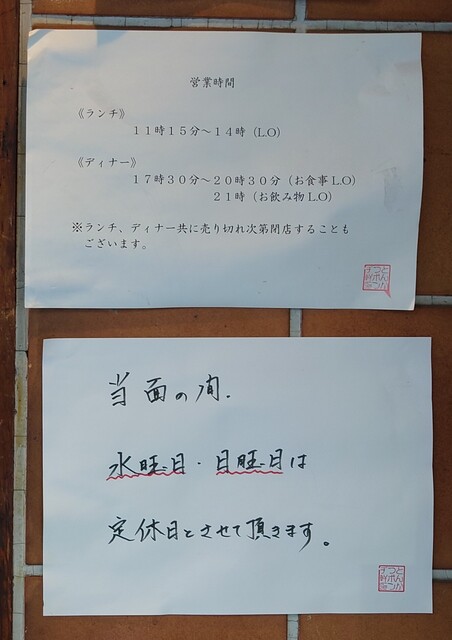 営業時間
《ランチ》
11時15分～14時（L.O）
《ディナー》
17時30分～20時30分（お食事L.O）
21時（お飲み物L.O）
※ランチ、ディナー共に売り切れ次第閉店することも
ございます。
当面の间.
水旺日・日旺日は
定休日とさせて頂きます。